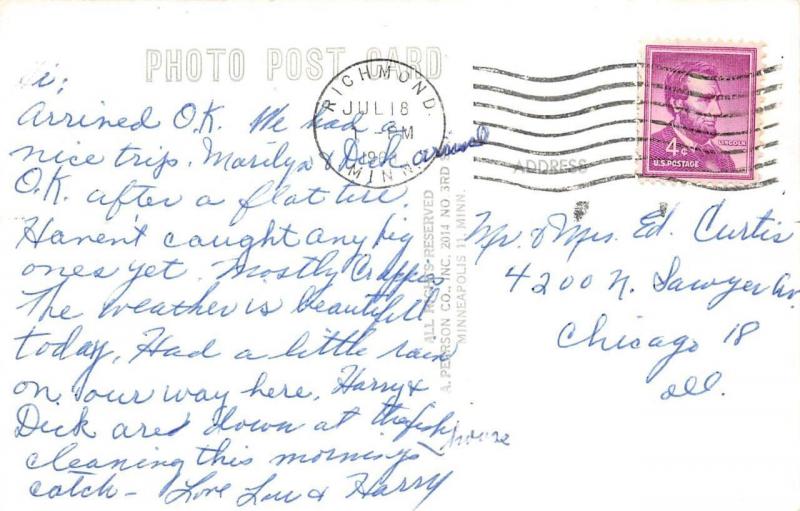 PHOTO POST CARD
Hi;
Arrived O.K. We had a
nice trip. Marilyn & Dick arrived
O.K. after a flat tire.
Haven't caught any big
ones yet. Mostly Crappies.
The weather is beautiful
today. Had a little rain
on our way here. Harry &
Dick are down at the fish house
cleaning this mornings
catch - Love Lou & Harry
RICHMOND.
JUL 18
PM
MINN.
ALL RIGHTS RESERVED
A. PEARSON CO., INC. 2014 NO. 3RD
MINNEAPOLIS 11, MINN.
ADDRESS
4¢
LINCOLN
U.S. POSTAGE
Mr. & Mrs. Ed. Curtis
4200 N. Sawyer Av
Chicago 18
Ill.